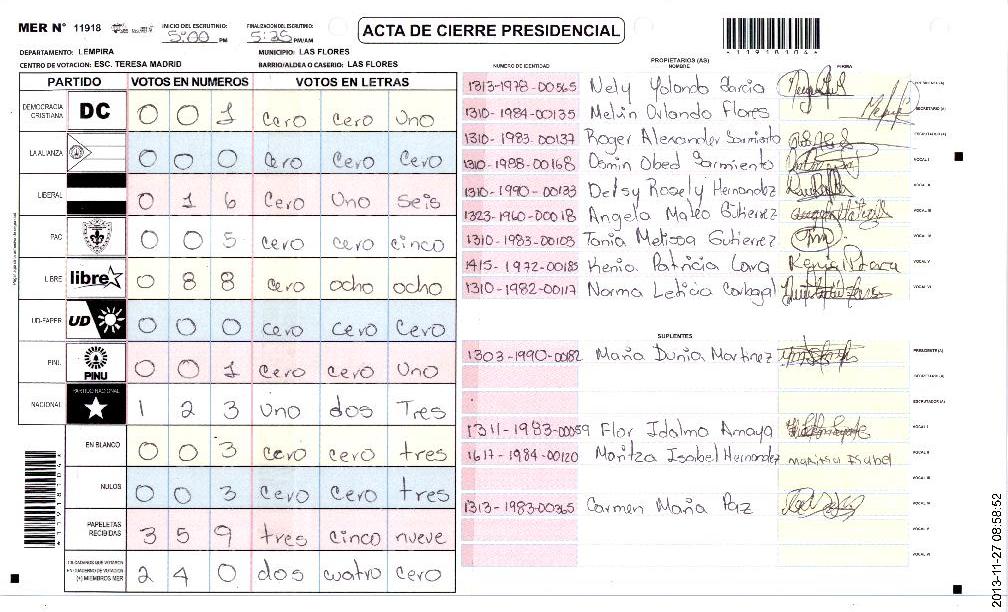 MER N° 11918 INICIO DEL ESCRUTINIO: 5:00 PM FINALIZACION DEL ESCRUTINIO: 5:25 PM/AM
ACTA DE CIERRE PRESIDENCIAL
*11918104*
DEPARTAMENTO: LEMPIRA MUNICIPIO: LAS FLORES
CENTRO DE VOTACION: ESC. TERESA MADRID BARRIO/ALDEA O CASERIO: LAS FLORES
PARTIDO VOTOS EN NUMEROS VOTOS EN LETRAS
DEMOCRACIA CRISTIANA DC 0 0 1 cero cero uno
LA ALIANZA 0 0 0 cero cero cero
LIBERAL 0 1 6 cero uno seis
PAC 0 0 5 cero cero cinco
LIBRE libre 0 8 8 cero ocho ocho
UD-FAPER UD 0 0 0 cero cero cero
PINU PINU 0 0 1 cero cero uno
NACIONAL PARTIDO NACIONAL 1 2 3 uno dos Tres
EN BLANCO 0 0 3 cero cero tres
NULOS 0 0 3 cero cero tres
PAPELETAS RECIBIDAS 3 5 9 tres cinco nueve
CIUDADANOS QUE VOTARON EN CUADERNO DE VOTACION (+) MIEMBROS MER 2 4 0 dos cuatro cero
NUMERO DE IDENTIDAD PROPIETARIOS (AS) NOMBRE FIRMA
1313-1978-00565 Nely Yolando Garcia PRESIDENTE (A)
1310-1984-00135 Melvin Orlando Flores SECRETARIO (A)
1310-1983-00137 Roger Alexander Sarmiento ESCRUTADOR (A)
1310-1988-00168 Osmin Obed Sarmiento VOCAL I
1310-1990-00133 Delsy Rosely Hernandez VOCAL II
1323-1960-00018 Angela Mateo Gutierrez VOCAL III
1310-1983-00103 Tania Melissa Gutierrez VOCAL IV
1415-1972-00185 Kenia Patricia Lara VOCAL V
1310-1982-00117 Norma Leticia Carbajal VOCAL VI
SUPLENTES
1303-1990-00182 Maria Dunia Martinez PRESIDENTE (A)
SECRETARIO (A)
ESCRUTADOR (A)
1311-1983-00059 Flor Idalma Amaya VOCAL I
1617-1984-00120 Maritza Isabel Hernandez Maritza Isabel VOCAL II
VOCAL III
1313-1983-00365 Carmen Maria Paz VOCAL IV
VOCAL V
VOCAL VI
2013-11-27 08:58:52